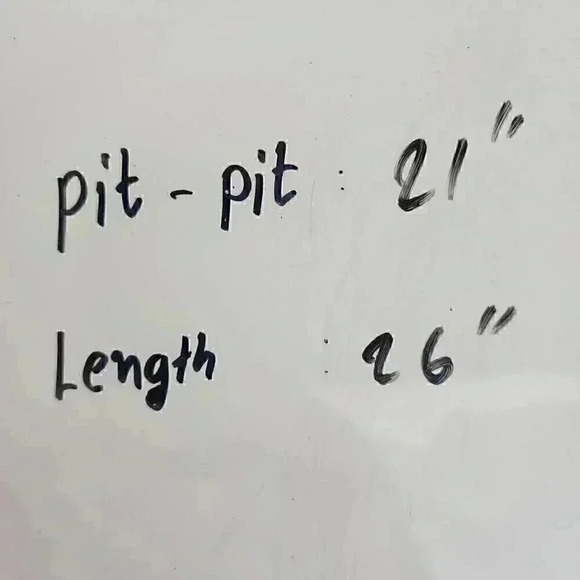 pit - pit : 21"
Length : 26"